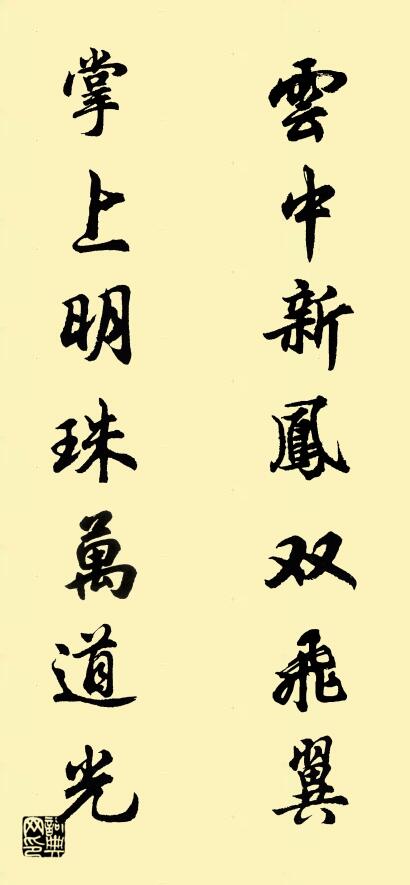 雲中新鳳双飛翼
掌上明珠萬道光